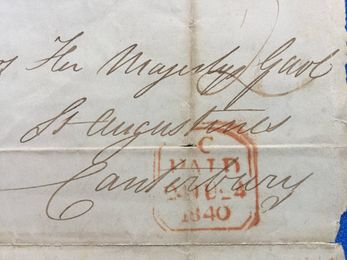 Her Majestys Gaol
St Augustines
Canterbury
C
PAID
1840